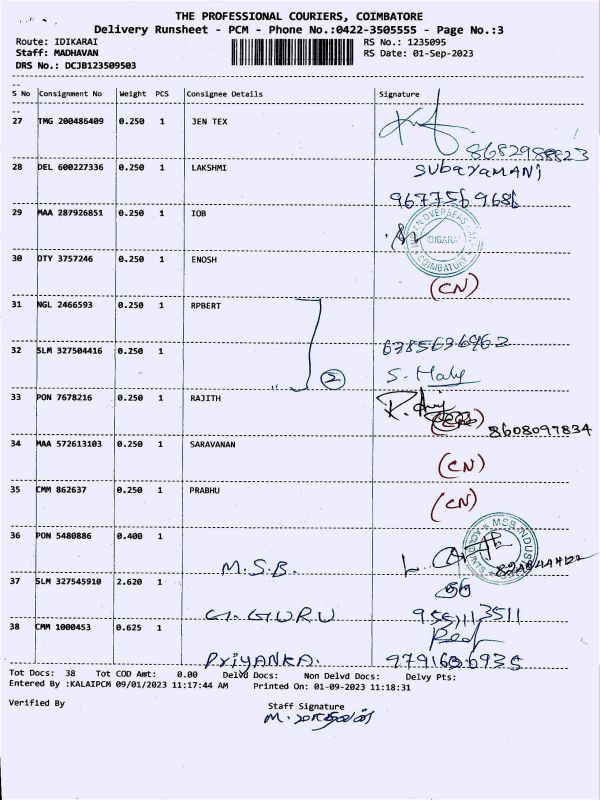 THE PROFESSIONAL COURIERS, COIMBATORE
Delivery Runsheet - PCM - Phone No.:0422-3505555 - Page No.:3
Route: IDIKARAI RS No.: 1235095
Staff: MADHAVAN RS Date: 01-Sep-2023
DRS No.: DCJB123509503
S No Consignment No Weight PCS Consignee Details Signature
27 TMG 200486409 0.250 1 JEN TEX
8682988823
28 DEL 600227336 0.250 1 LAKSHMI SUBAYAMANI
9677569686
29 MAA 287926851 0.250 1 IOB
30 DTY 3757246 0.250 1 ENOSH
(CN)
31 NGL 2466593 0.250 1 RPBERT
32 SLM 327504416 0.250 1 6385636962
2 S. Maly
33 PON 7678216 0.250 1 RAJITH
8608097834
34 MAA 572613103 0.250 1 SARAVANAN
(CN)
35 CMM 862637 0.250 1 PRABHU
(CN)
36 PON 5480886 0.400 1
M.S.B.
37 SLM 327545910 2.620 1
G. GURU 9551113511
38 CMM 1000453 0.625 1
PriYANKA.
Tot Docs: 38 Tot COD Amt: 0.00 Delvd Docs: Non Delvd Docs: Delvy Pts:
Entered By :KALAIPCM 09/01/2023 11:17:44 AM Printed On: 01-09-2023 11:18:31
Verified By Staff Signature
M. மாதவன்